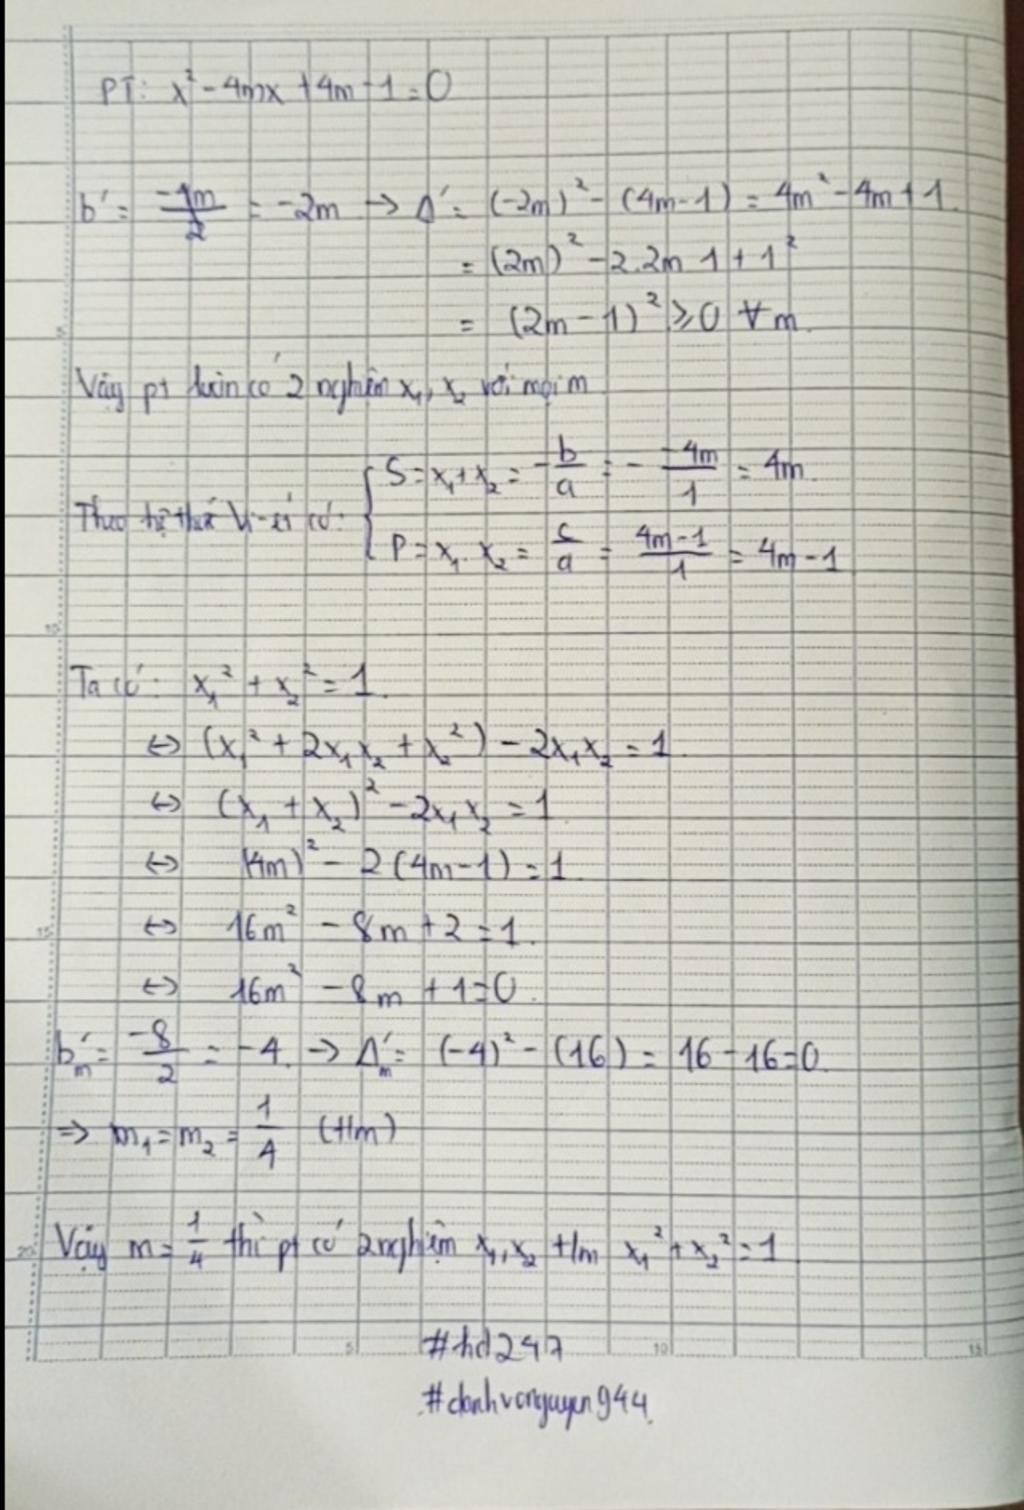 PT: x² - 4mx + 4m - 1 = 0
b' = -4m/2 = -2m → Δ' = (-2m)² - (4m-1) = 4m² - 4m + 1.
= (2m)² - 2.2m.1 + 1²
= (2m - 1)² ≥ 0 ∀m.
Vậy pt luôn có 2 nghiệm x₁, x₂ với mọi m
Theo hệ thức Vi-ét có: { S = x₁ + x₂ = -b/a = - -4m/1 = 4m.
P = x₁. x₂ = c/a = 4m-1/1 = 4m - 1
Ta có: x₁² + x₂² = 1.
↔ (x₁² + 2x₁x₂ + x₂²) - 2x₁x₂ = 1.
↔ (x₁ + x₂)² - 2x₁x₂ = 1.
↔ (4m)² - 2(4m-1) = 1.
↔ 16m² - 8m + 2 = 1.
↔ 16m² - 8m + 1 = 0.
b'ₘ = -8/2 = -4. → Δ'ₘ = (-4)² - (16) = 16 - 16 = 0.
⇒ m₁ = m₂ = 1/4 (t/m)
Vậy m = 1/4 thì pt có 2 nghiệm x₁, x₂ t/m x₁² + x₂² = 1.
#hd247
#danhvonguyen944